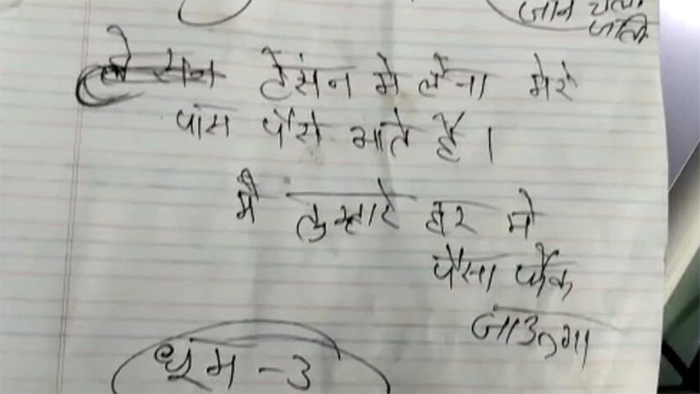 जान चला
जाते
टेंसन मे लेना मेरे
पास पैसे आते है।
मै तुम्हारे घर मे
पैसा फेंक
जाउन्गा
धूम -3